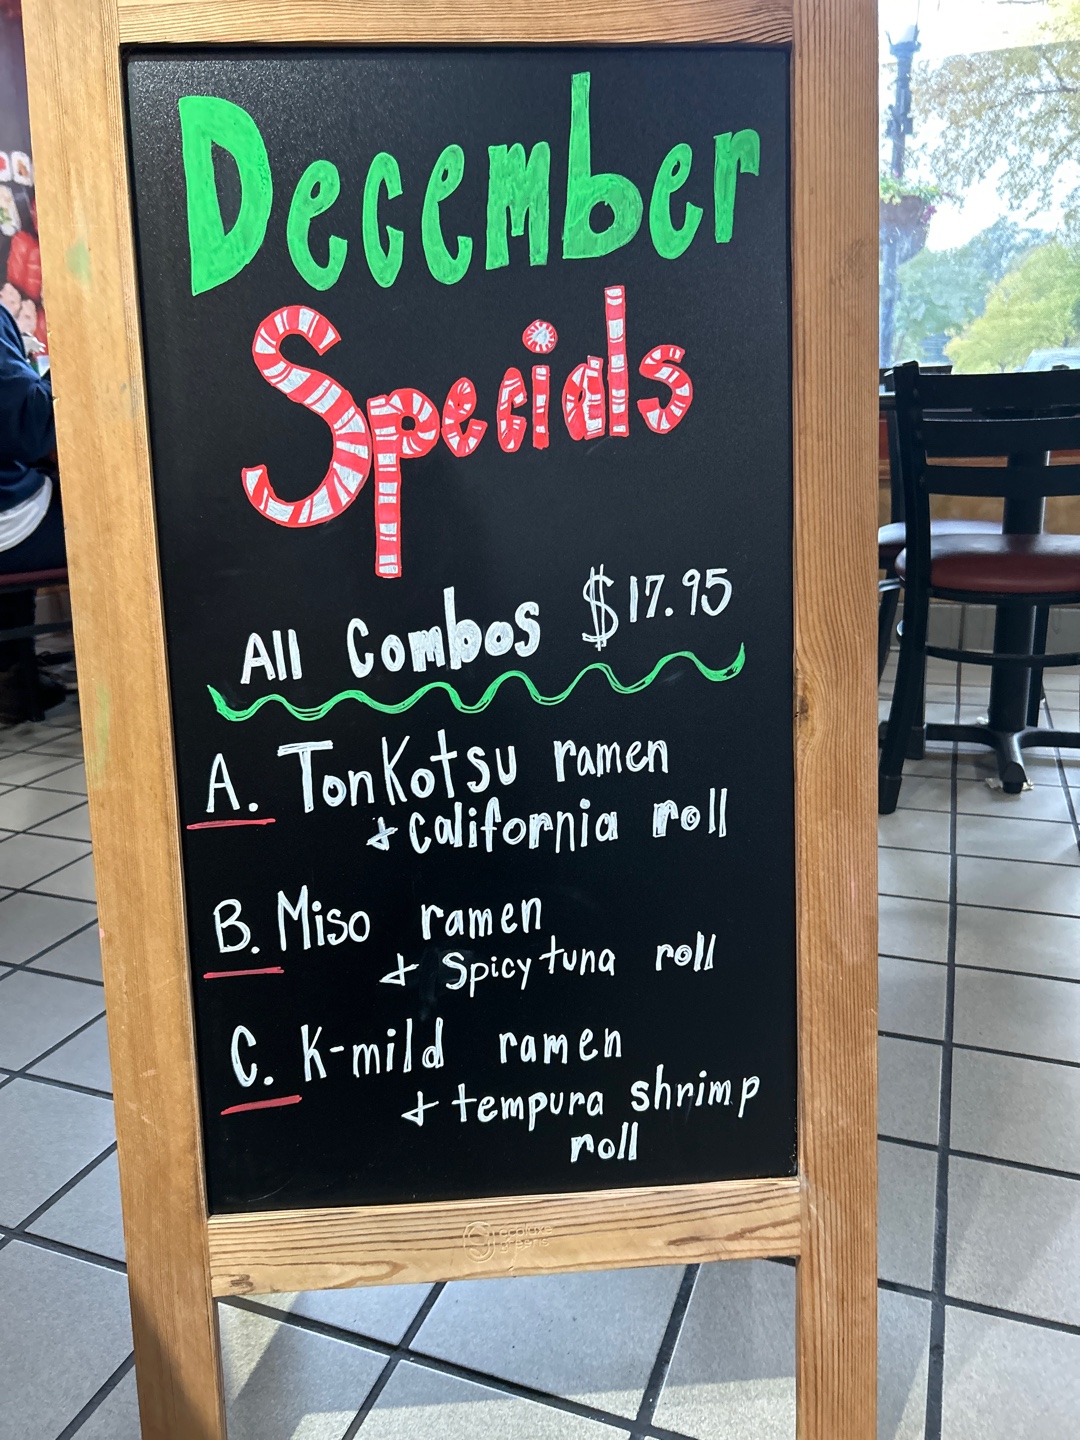 December
Specials
All Combos $17.95
A. Tonkotsu ramen
+ California roll
B. Miso ramen
+ Spicy tuna roll
C. K-mild ramen
+ tempura shrimp
roll
ecoluxe
greens